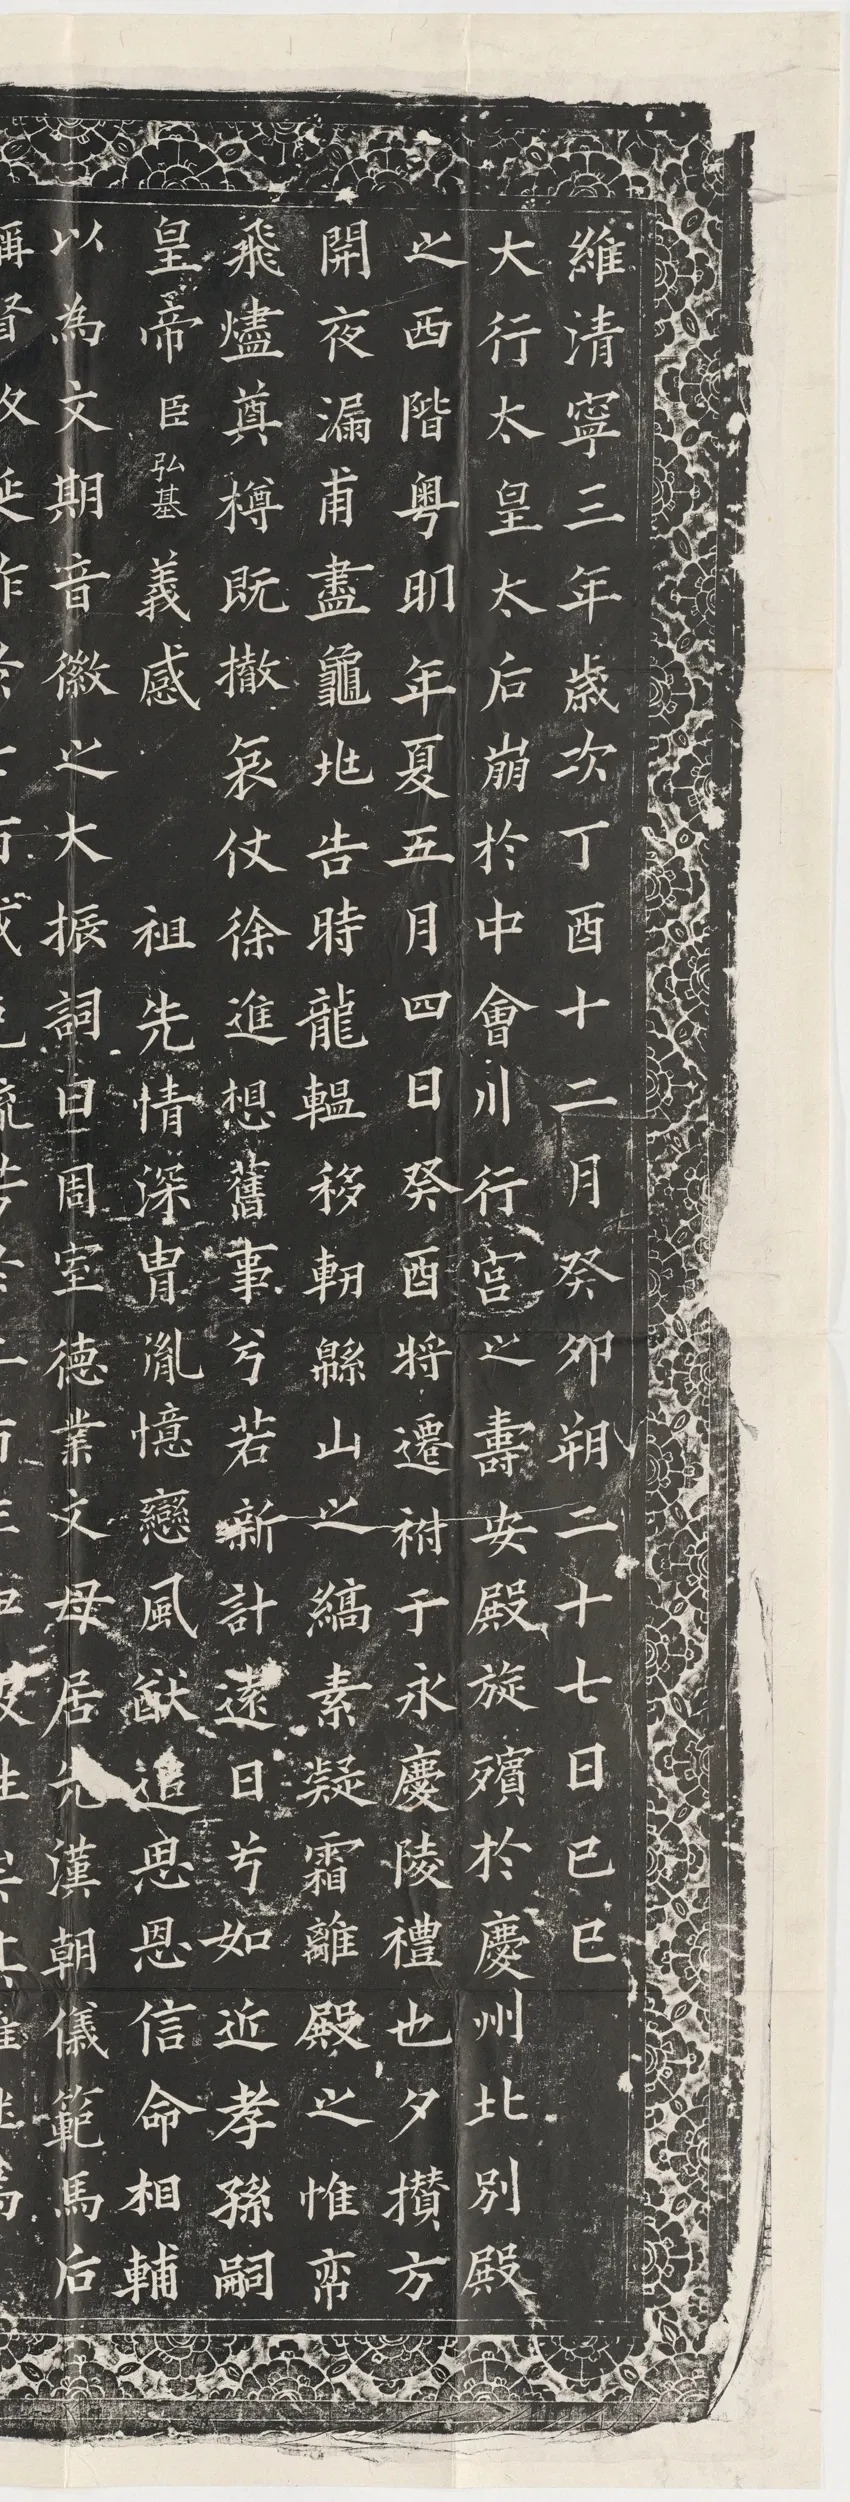 維清寧三年歲次丁酉十二月癸卯朔二十七日己巳
大行太皇太后崩於中會川行宮之壽安殿旋殯於慶州北別殿
之西階粵明年夏五月四日癸酉將遷祔于永慶陵禮也夕攢方
開夜漏甫盡龜兆告時龍轀移軔緜山之縞素凝霜離殿之惟帟
飛燼奠樽既撤哀仗徐進想舊事兮若新計遠日兮如近孝孫嗣
皇帝臣弘基義感 祖先情深胄胤憶戀風猷追思恩信命相輔
以為文期音徽之大振詞曰周室德業文母居先漢朝儀範馬后